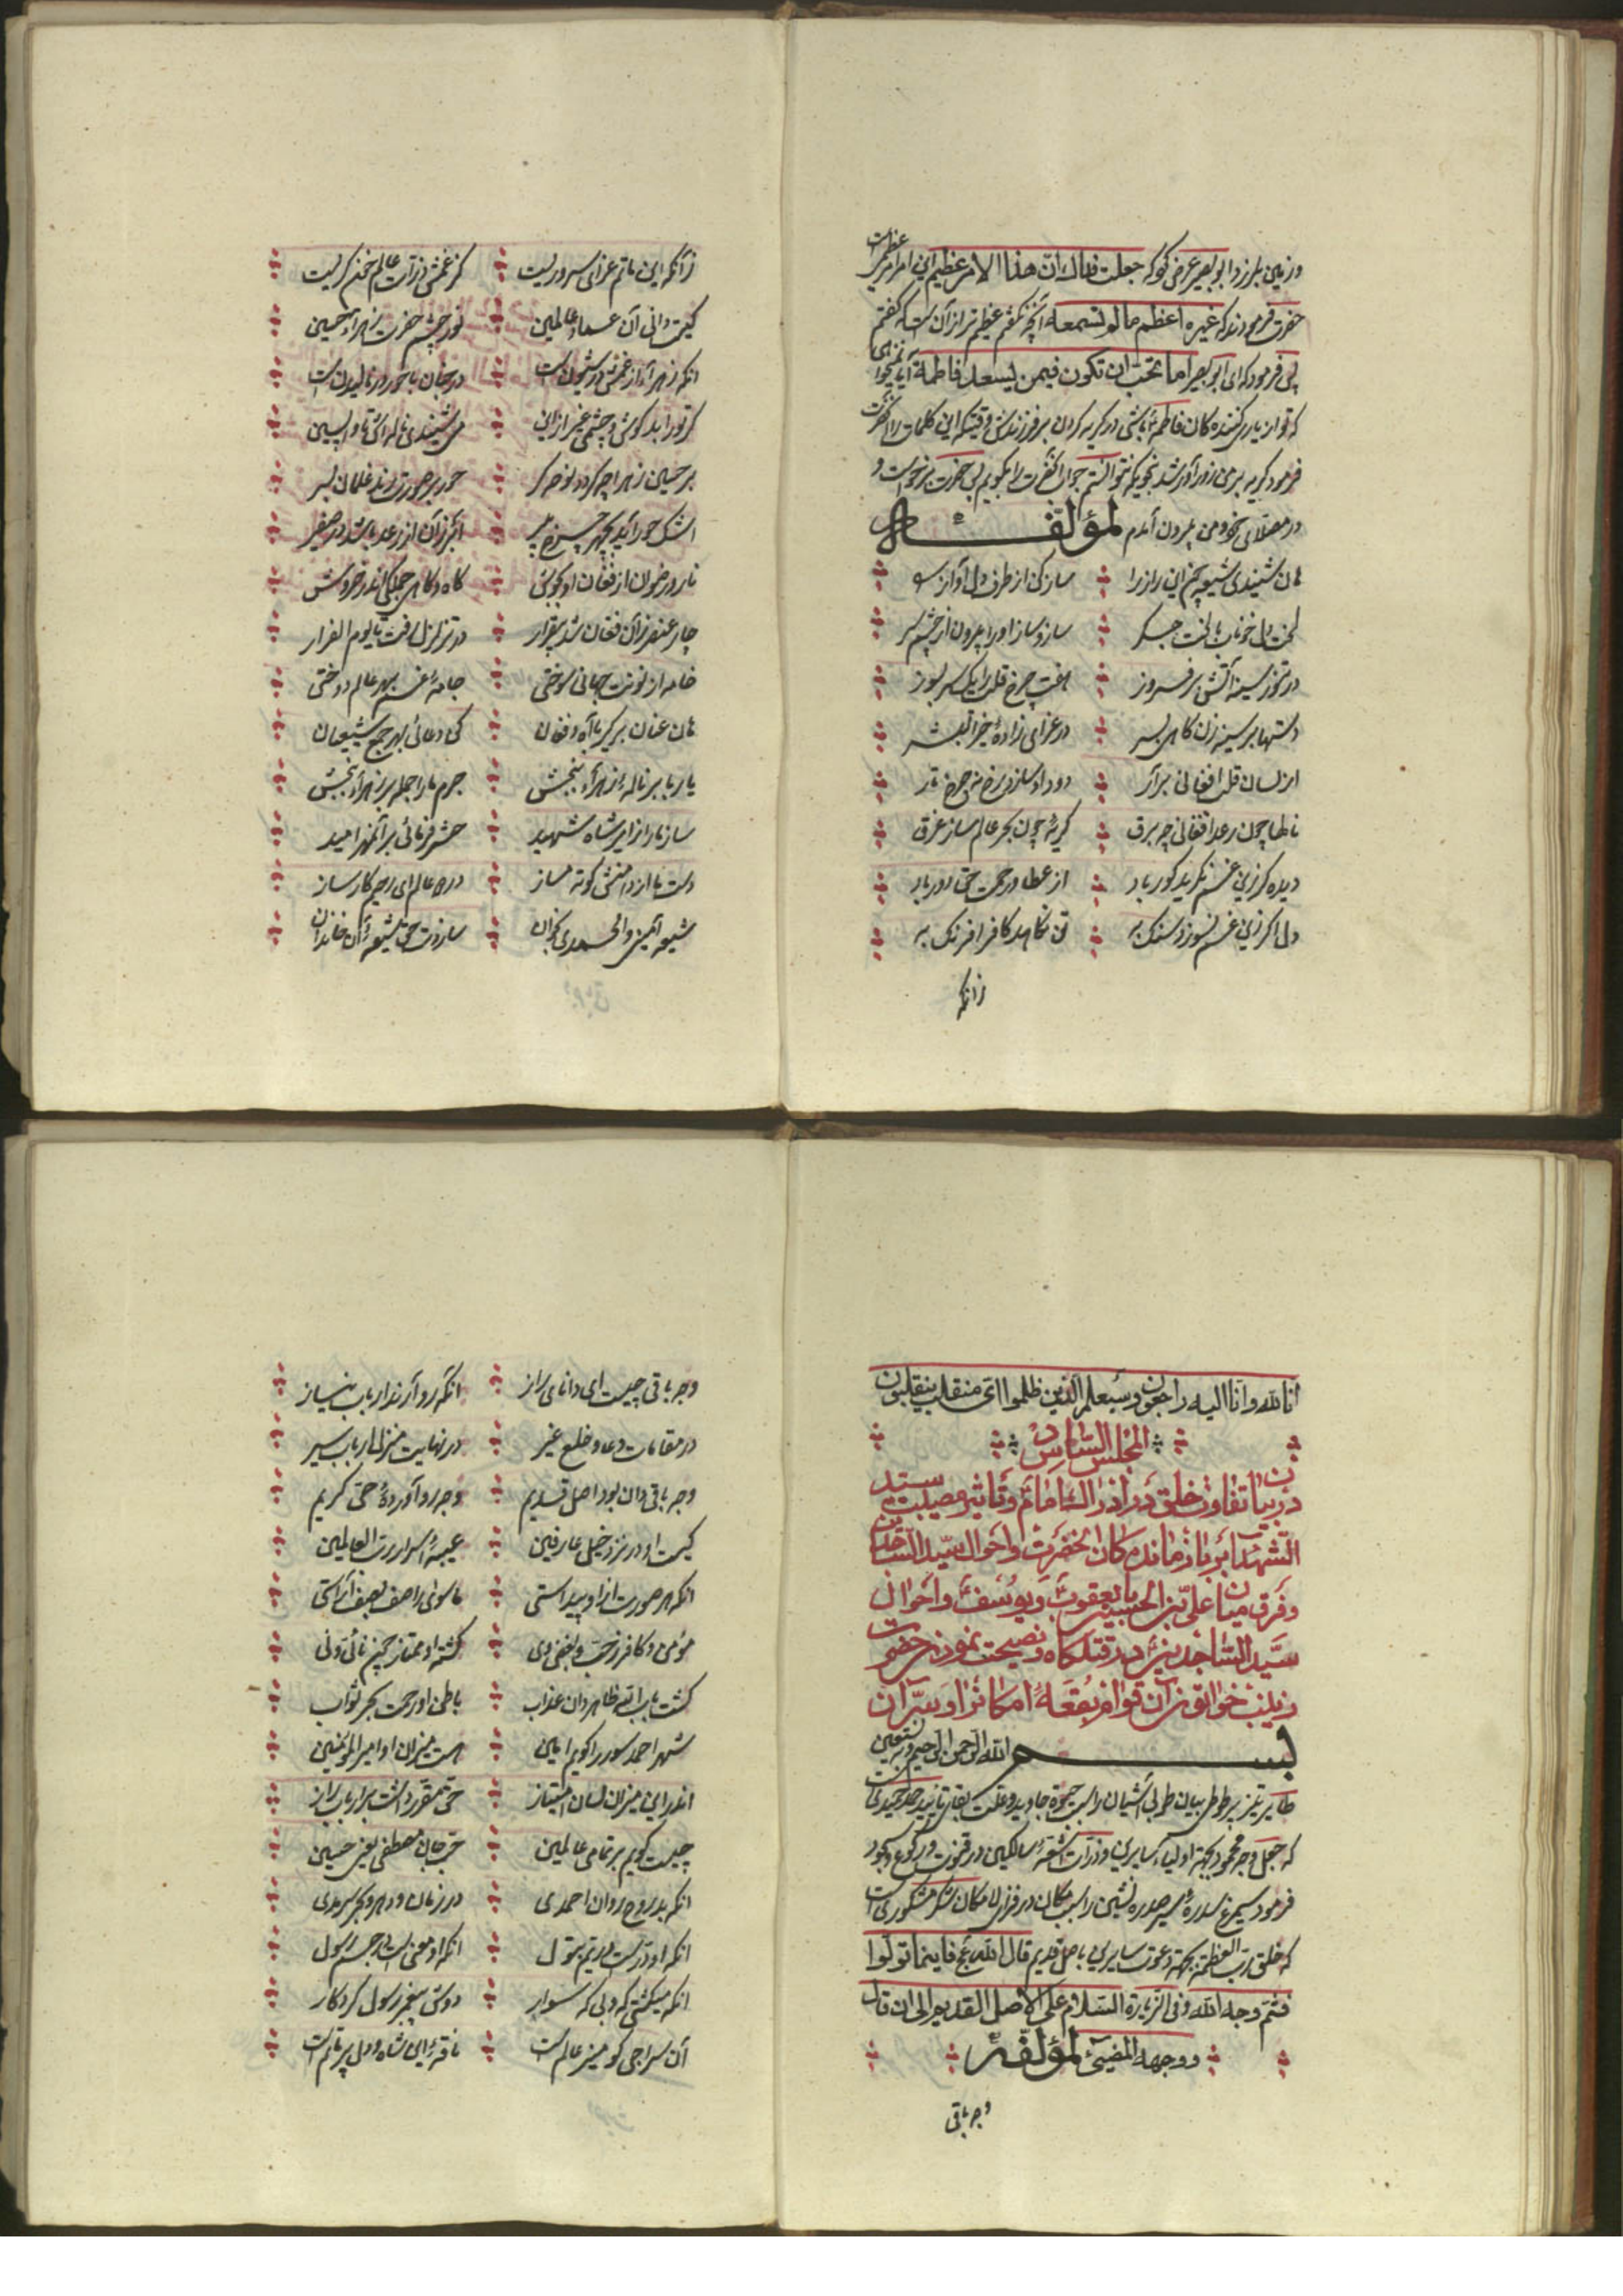 و زمین بلرزد ابو بصیر عرض کرد که جعلت فداك انّ هذا الامر عظیم این امر امریست عظیم
حضرت فرمودند که غیره اعظم ما لم تسمعه آنچه نگفتم عظیم تر از آن است که گفتم
پس فرمود که ای ابو بصیر اما تحب ان تکون فیمن یسعد فاطمة آیا نمیخواهی
که تو از یاری کننده کان فاطمه باشی در گریه کردن بر فرزندش وقتیکه این کلمات را آنحضرت
فرمود گریه بر من زور آور شد بنحویکه نتوانستم جواب آنحضرت را بگویم پس حضرت برخواست و
در مصلای خود و من بیرون آمدم لمؤلفه
هان شنیدی شیعه چون این راز را
ساز کن از طرف دل آواز
لخت دل خوناب با لخت جگر
سازد و ساز او را بیرون از چشم سر
در تنور سینه آتش بر فروز
هفت چرخ قلب را یکسر بسوز
دستها بر سینه زن کاهی بسر
در عزای زادهٔ خیر البشر
از لسان قلب افغانی برآر
دود او سازد رخ نه چرخ تار
ناطقا چون رعد افغانی چه برق
گریهٔ چون بحر عالم ساز غرق
دیده کز این غم نگرید کور باد
از عطا و رحمت حق دور باد
دل اکر زین غم نسوزد سنک به
تن نکاهد کافر افرنک به
زانکه
زآنکه این ماتم عزای سروریست
کز غمش ذرات عالم خون گریست
کیست دانی آن عماد عالمین
نور چشم حضرت زهرا حسین
انکه زهرا از غمش در شیون است
در جنان با شور و در نالیدن است
گر تو را بد گوش و چشمی غیر از این
می شنیدی ناله اش تا واپسین
بر حسین زهرا چه گردد نوحه گر
حور بر صورت زند غلمان بسر
اشک حور آید بچهر
نار و رضوان از فغان او بجوش
کاه و کاهی جملگی اندر خروش
چار عنصر زآن فغان شد بیقرار
در تزلزل رفت تا یوم القرار
خامه از نوکت جهانی سوختی
جامهٔ غم بهر عالم دوختی
هان عنان برگیر با آه و فغان
کن دعائی بهر جمع شیعیان
یا ربا بر نالهٔ زهرا ببخش
جرم ما را جمله بر زهرا ببخش
ساز ما را زایر شاه شهید
حشر فرمائی بر آنهم امید
دست ما از دامنش کوته مساز
در دو عالم ای رحیم کارساز
شیعه آمین و الحمدی بخوان
سازدت حق شیعهٔ آن خاندان
انا لله و انا الیه راجعون و سیعلم الذین ظلموا ای منقلب ینقلبون
المجلس السّادس
در بیان تفاوت خلق در ادراك امام و تاثیر مصیبت سید
الشهدا بر بازمانده کان آنحضرت و احوال سید الساجدین
و فرق میان علی بن الحسین با یعقوب و یوسف و احوال
سیّد السّاجدین در قتلگاه و نصیحت نمودن حضرت
زینب خواتون آن قوافر بقعهٔ امکانرا و سرّ آن
بسم الله الرحمن الرحیم و به نستعین
طایر تیز پر طوطی بیان طوبی آشیان را سبب حیوة جاوید و علت بقا و تایید حمد حمیدی است
که جعل وجه محمود بجهة اولیاء سایرین و ذرات اشقهٔ سالکین در قنوت و رکوع و سجود
فرمود سیمرغ سدره سیر صدره نشین را سبب مکان در فراز لا مکان شکر مشکوری است
که خلق رب العظمة بجهة دعوت سایرین باصل قدیم قال الله عج فاینما تولّوا
فثمّ وجه الله و فی الزیارة السّلام علی الاصل القدیم الی ان قال
و وجهه المضیئ لمؤلفه
وجه باقی
وجه باقی چیست ای دانای راز
انکه رو آرند ارباب نیاز
در مقامات دعا و خلع غیر
در نهایت منزل ارباب سیر
وجه باقی دان بود اصل قدیم
وجه رو آوردهٔ حق کریم
کیست او در نزد خیل عارفین
عیبهٔ اسرار رب العالمین
انکه هر صورت از او پیداستی
ماسوی را صف بصف آراستی
مؤمن و کافر ز حب و بغض وی
گشته او ممتاز چون نائی و نی
گشت باب الله ظاهر دان عذاب
باطن او رحمت بحر ثواب
شهر احمد سور را گویم این
هست میزان او امیر المؤمنین
اندر این میزان لسان امتیاز
حق مقرر داشت بر ارباب راز
چیست گویم بر تمامی عالمین
حب جان مصطفی یعنی حسین
انکه بد روح روان احمدی
در زمان و دهر و بحر سرمدی
انکه او درّیست در یم بتول
انکه او معنیست در جسم رسول
انکه میکشتی که و بی که سوار
دوش پیغمبر رسول کردگار
آن سراجی کو منیر عالم است
ناقهٔ این شاه و دل پر ماتم است